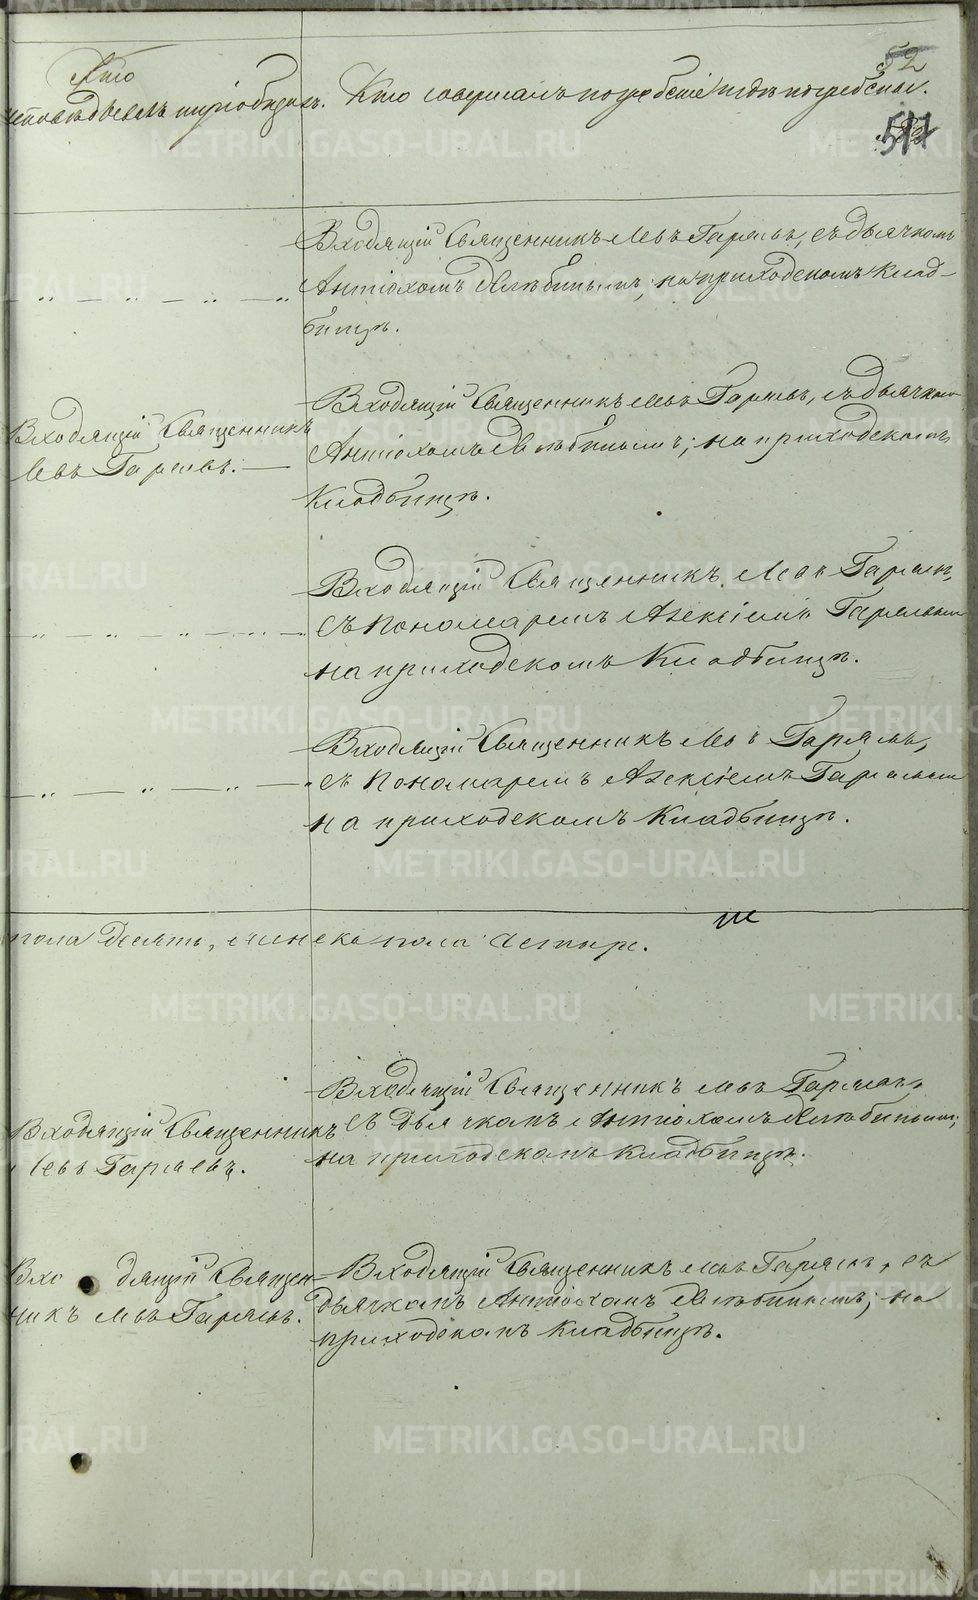 52
Кто
исповѣдывалъ и пріобщалъ.
Кто совершалъ погребеніе и гдѣ погребены.
517
Входящій Священникъ Левъ Гаряевъ, съ дьячкомъ
Антіохомъ
на приходскомъ Клад-
бищѣ.
Входящій Священникъ
Левъ Гаряевъ.
Входящій Священникъ Левъ Гаряевъ, съ дьячкомъ
Антіохомъ
на приходскомъ
Кладбищѣ.
Входящій Священникъ Левъ Гаряевъ,
съ Пономаремъ Алексіемъ Гаряевымъ
на приходскомъ Кладбищѣ.
Входящій Священникъ Левъ Гаряевъ,
съ Пономаремъ Алексіемъ Гаряевымъ
на приходскомъ Кладбищѣ.
пола десять, женска пола четыре.
Входящій Священникъ
Левъ Гаряевъ.
Входящій Священникъ Левъ Гаряевъ,
съ дьячкомъ Антіохомъ
на приходскомъ Кладбищѣ.
Входящій Священ-
никъ Левъ Гаряевъ.
Входящій Священникъ Левъ Гаряевъ, съ
дьячкомъ Антіохомъ
на
приходскомъ Кладбищѣ.
METRIKI.GASO-URAL.RU